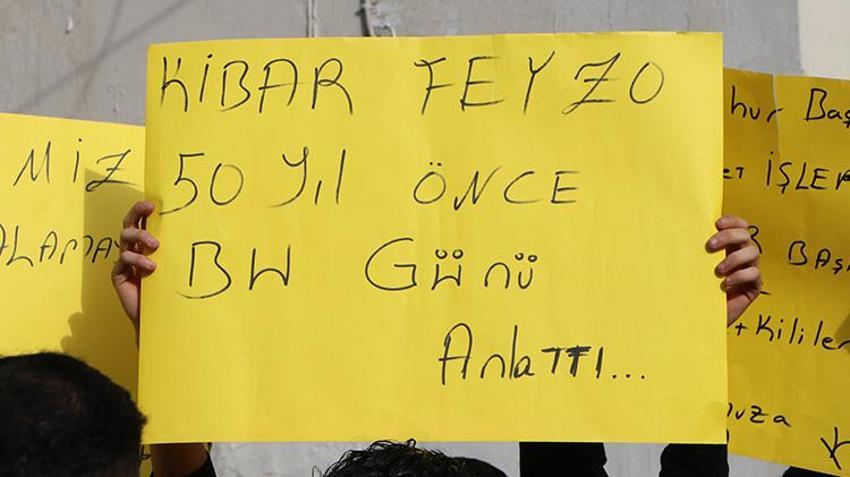 MİZ
ALAMAY
KİBAR FEYZO
50 yıl ÖNCE
BU GÜNÜ
Anlattı...
hur Baş
ET İŞLER
R BAŞ
Kililer
uza